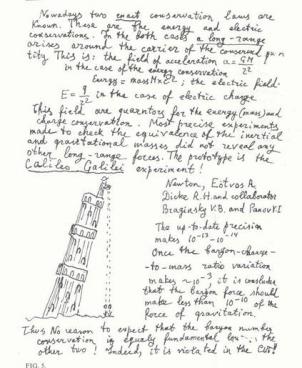 Nowadays two exact conservation laws are
known. These are the energy and electric
conservations. In the both casts a long-range
arises around the carrier of the conserved
tity This is: the field of acceleration a = GM/r²
in the case of the energy conservation
Energy = mass M×c²; the electric field
E = q/r² in the case of electric charge
This field are guarantors for the energy (mass) and
charge conservation. Most precise experiments
made to check the equivalence of the inertial
and gravitational masses did not reveal any
other long-range forces. The prototype is the
Galileo Galilei experiment!
Newton, Eötvös R,
Dicke R.H. and collaborator
Braginsky V.B. and Panov V.I
The up-to-date precision
makes 10⁻¹³ – 10⁻¹⁴
Once the baryon-charge-
-to-mass ratio variation
makes ~10⁻³, it is concluded
that the baryon force should
make less than 10⁻¹⁰ of the
force of gravitation.
Thus No reason to expect that the baryon number
conservation is equally fundamental
other two! Indeed, it is violated in the
FIG. 5.